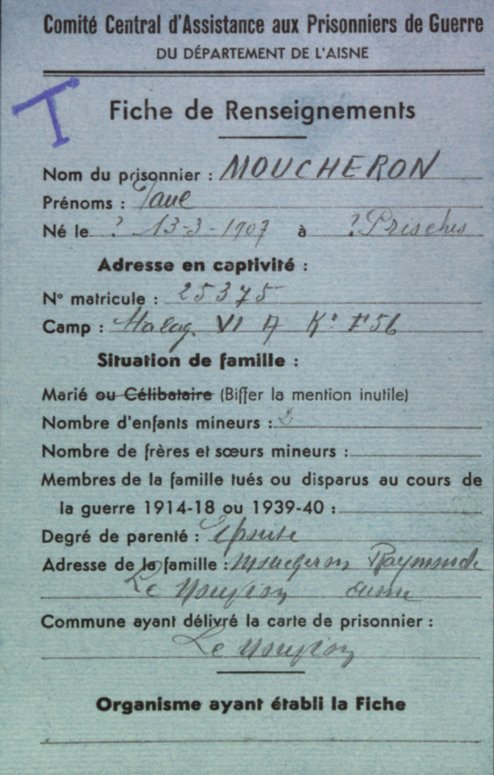 Comité Central d'Assistance aux Prisonniers de Guerre
DU DÉPARTEMENT DE L'AISNE
T
Fiche de Renseignements
Nom du prisonnier : MOUCHERON
Prénoms :
Né le ? 13-3-1907 à ? Prisches
Adresse en captivité :
N° matricule : 25375
Camp : Stalag VI A K°
Situation de famille :
Marié ou Célibataire (Biffer la mention inutile)
Nombre d'enfants mineurs : 2
Nombre de frères et sœurs mineurs :
Membres de la famille tués ou disparus au cours de
la guerre 1914-18 ou 1939-40 :
Degré de parenté : Epouse
Adresse de la famille : Moucheron Raymonde
Le Nouvion Aisne
Commune ayant délivré la carte de prisonnier :
Le Nouvion
Organisme ayant établi la Fiche